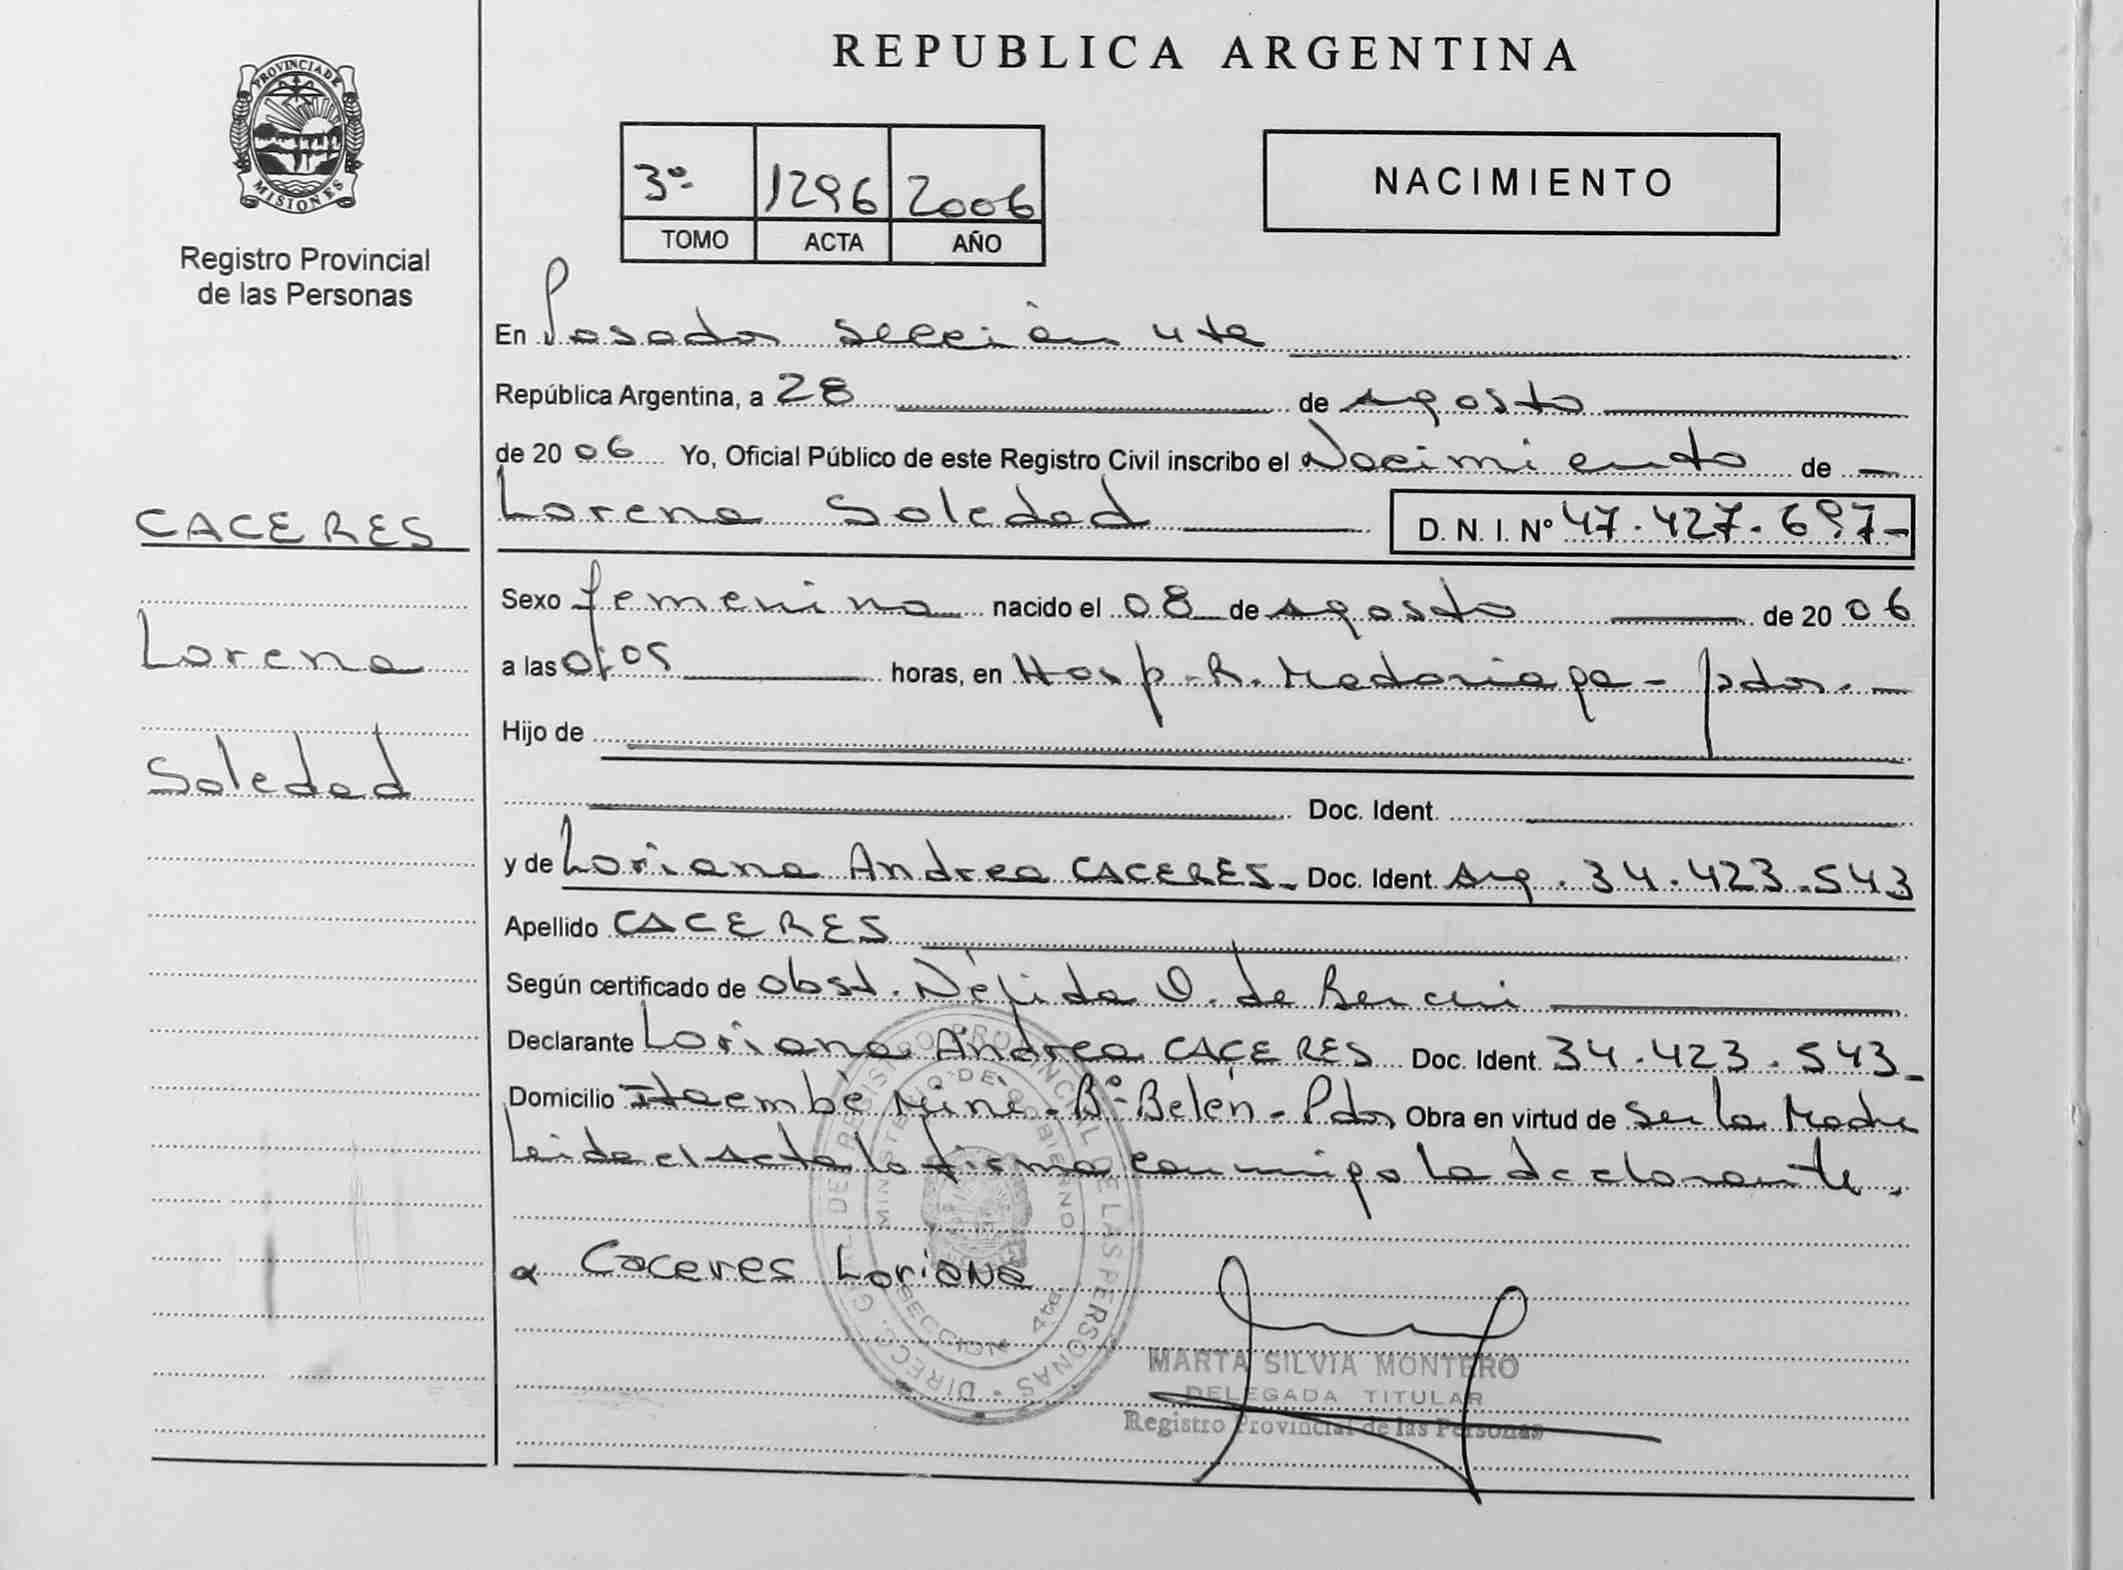 PROVINCIA DE
MISIONES
Registro Provincial
de las Personas
CACERES
Lorena
Soledad
REPUBLICA ARGENTINA
3º 1296 2006
TOMO ACTA AÑO
NACIMIENTO
En Posadas sección 4ta
República Argentina, a 28 de agosto
de 2006 Yo, Oficial Público de este Registro Civil inscribo el Nacimiento de
Lorena Soledad D. N. I. Nº 47.427.697
Sexo femenino nacido el 08 de agosto de 2006
a las horas, en Hosp. R. Madariaga - pdas.
Hijo de
Doc. Ident.
y de Loriana Andrea CACERES Doc. Ident. Arg. 34.423.543
Apellido CACERES
Según certificado de obst. Nélida O. de
Declarante Loriana Andrea CACERES Doc. Ident. 34.423.543
Domicilio Itaembé Miní - Bº Belén - Pdas Obra en virtud de ser la Madre
Leida el acta la firma conmigo la declarante.
Caceres Loriana
DIRECC. GRAL. DE REGISTRO PROVINCIAL DE LAS PERSONAS
MINISTERIO DE GOBIERNO
SECCION 4ta
MARTA SILVIA MONTERO
DELEGADA TITULAR
Registro Provincial de las Personas